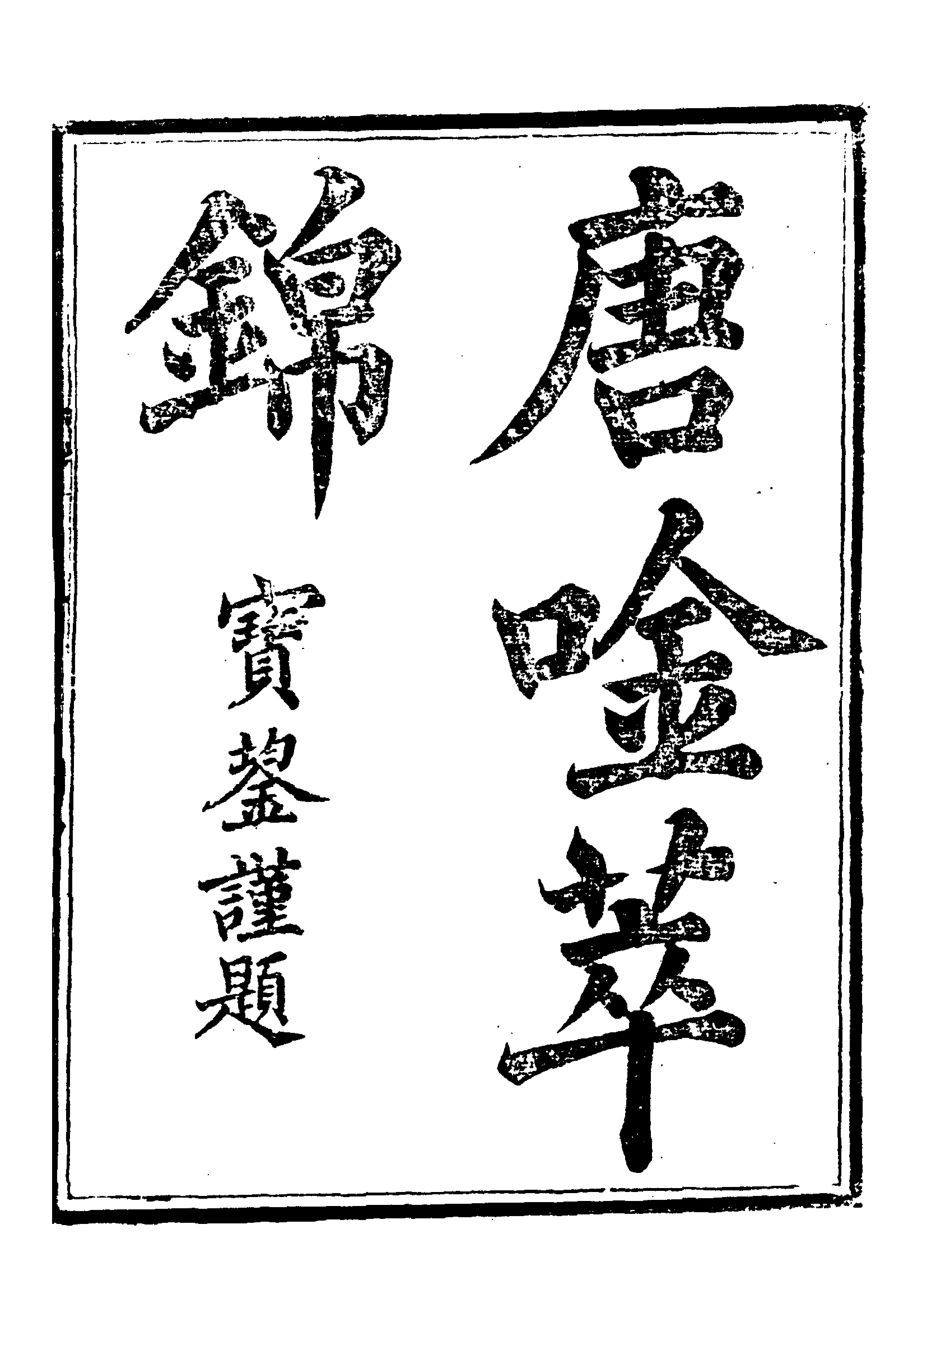 唐唫萃
錦
寶鋆謹題